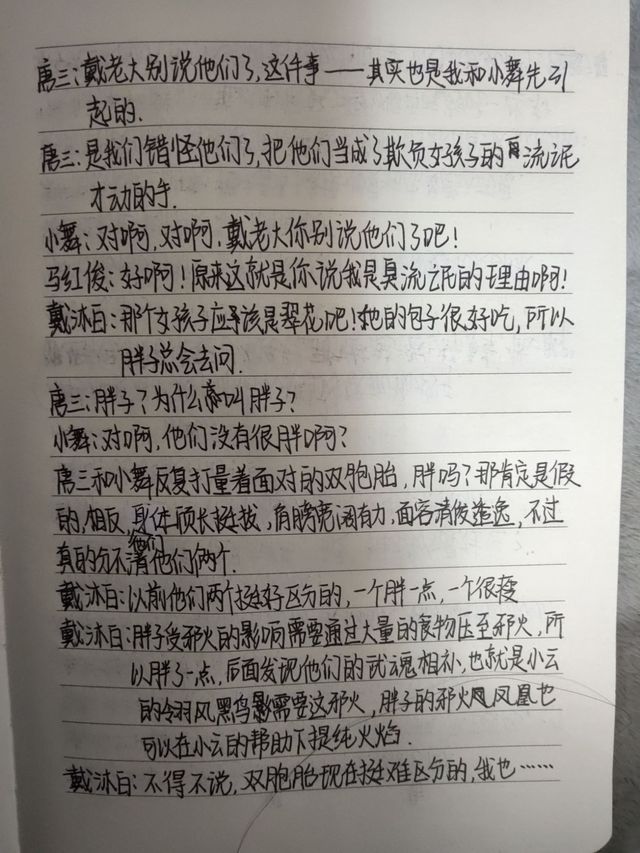 唐三：戴老大别说他们了，这件事——其实也是我和小舞先引
起的.
唐三：是我们错怪他们了，把他们当成了欺负女孩子的流氓
才动的手.
小舞：对啊，对啊，戴老大你别说他们了吧！
马红俊：好啊！原来这就是你说我是臭流氓的理由啊！
戴沐白：那个女孩子应该是翠花吧！她的包子很好吃，所以
胖子总会去问.
唐三：胖子？为什么叫胖子？
小舞：对啊，他们没有很胖啊？
唐三和小舞反复打量着面对的双胞胎，胖吗？那肯定是假
的，相反，身体颀长挺拔，肩膀宽阔有力，面容清俊逸，不过
真的分不清他们俩个.
戴沐白：以前他们两个挺好区分的，一个胖一点，一个很瘦
戴沐白：胖子受邪火的影响需要通过大量的食物压至邪火，所
以胖了一点，后面发现他们的武魂相补，也就是小云
的翎羽风黑鸟影需要这邪火，胖子的邪火凤凰也
可以在小云的帮助下提纯火焰.
戴沐白：不得不说，双胞胎现在挺难区分的，我也……